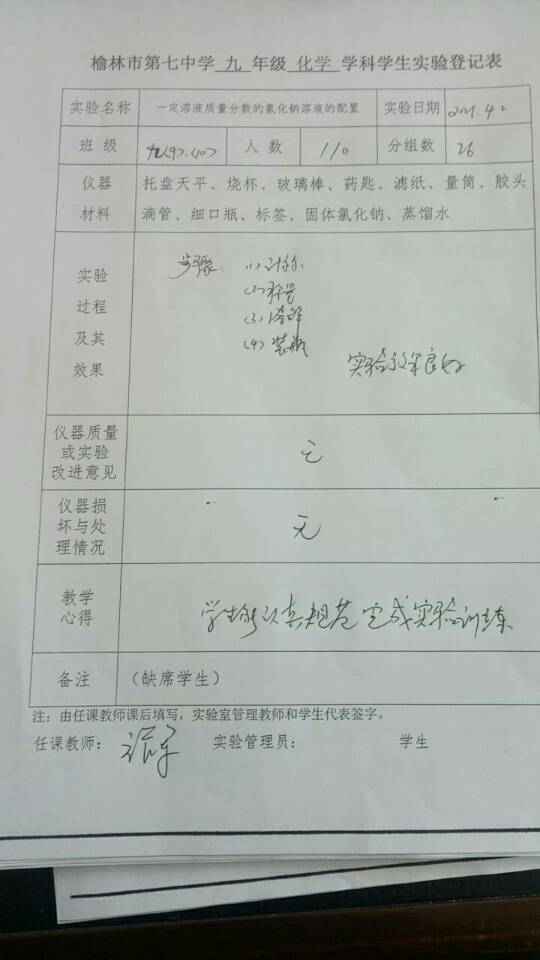 榆林市第七中学 九 年级 化学 学科学生实验登记表
实验名称 一定溶液质量分数的氯化钠溶液的配置 实验日期 2021.4.2
班 级 九<9>.<10> 人 数 110 分组数 26
仪器 材料 托盘天平、烧杯、玻璃棒、药匙、滤纸、量筒、胶头
滴管、细口瓶、标签、固体氯化钠、蒸馏水
实验
过程
及其
效果
步骤: (1)计算
(2)称量
(3)溶解
(4)装瓶
实验效果良好
仪器质量
或实验
改进意见
无
仪器损
坏与处
理情况
无
教学
心得
学生能认真规范完成实验训练
备注 (缺席学生)
注:由任课教师课后填写,实验室管理教师和学生代表签字。
任课教师: 实验管理员: 学生